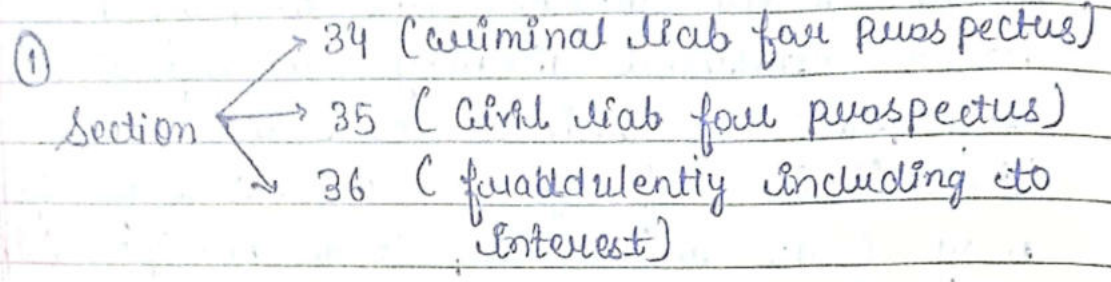 ① 34 (criminal liab for prospectus)
Section 35 (Civil liab for prospectus)
36 (fraddulently including to
interest)